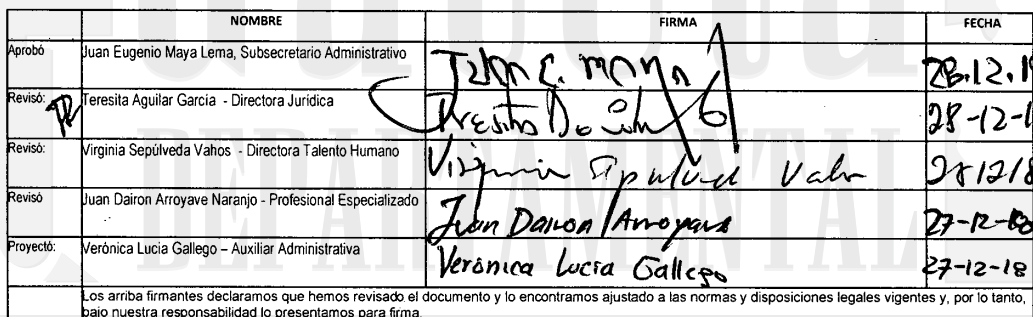 NOMBRE FIRMA FECHA
Aprobó Juan Eugenio Maya Lema, Subsecretario Administrativo Juan E. Maya 28.12.1
Revisó: Teresita Aguilar García - Directora Jurídica 28-12-1
Revisó: Virginia Sepúlveda Vahos - Directora Talento Humano Virginia Sepulveda Vahos 28/12/18
Revisó Juan Dairon Arroyave Naranjo - Profesional Especializado Juan Dairon Arroyave 27-12-18
Proyectó: Verónica Lucia Gallego – Auxiliar Administrativa Verónica Lucía Gallego 27-12-18
Los arriba firmantes declaramos que hemos revisado el documento y lo encontramos ajustado a las normas y disposiciones legales vigentes y, por lo tanto,
bajo nuestra responsabilidad lo presentamos para firma.
DEPARTAMENTAL